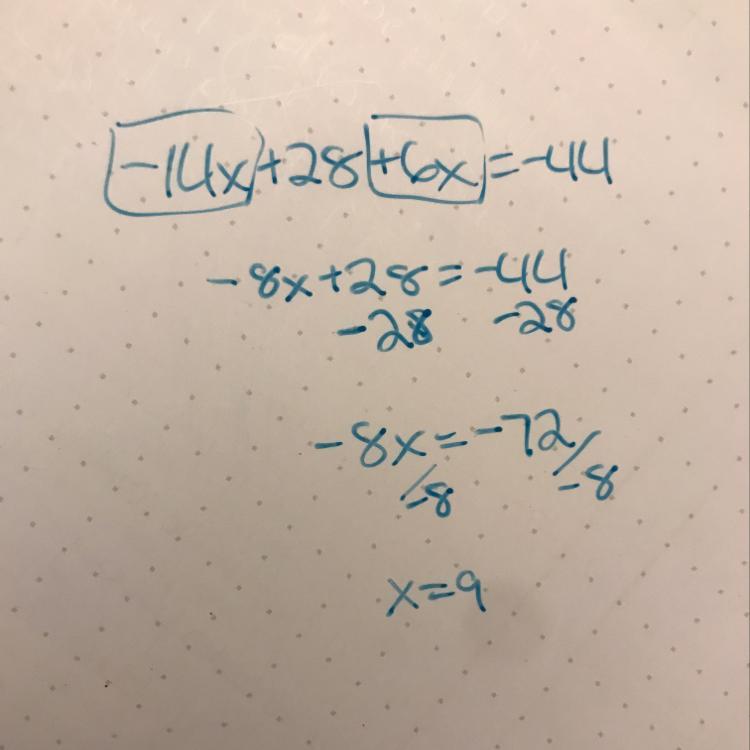 -14x+28+6x=-44
-8x+28=-44
-28 -28
-8x=-72
/-8 /-8
x=9